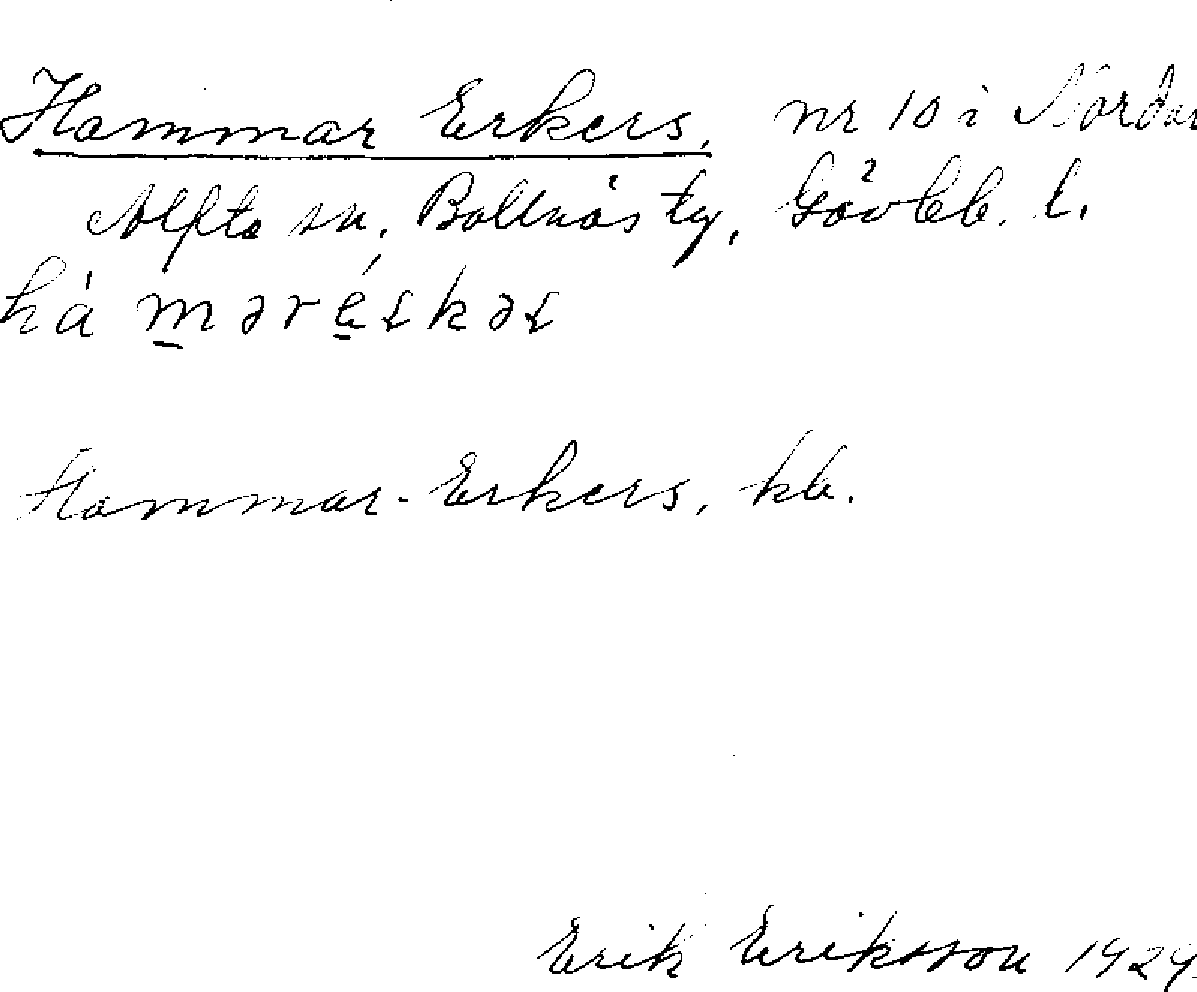 Hammar Erkers, nr 10 i Nordan
Alfta sn, Bollnäs tg, Gävleb. l.
hà m̲əré̲skəs
Hammar-Erkers, kb.
Erik Eriksson 1929.